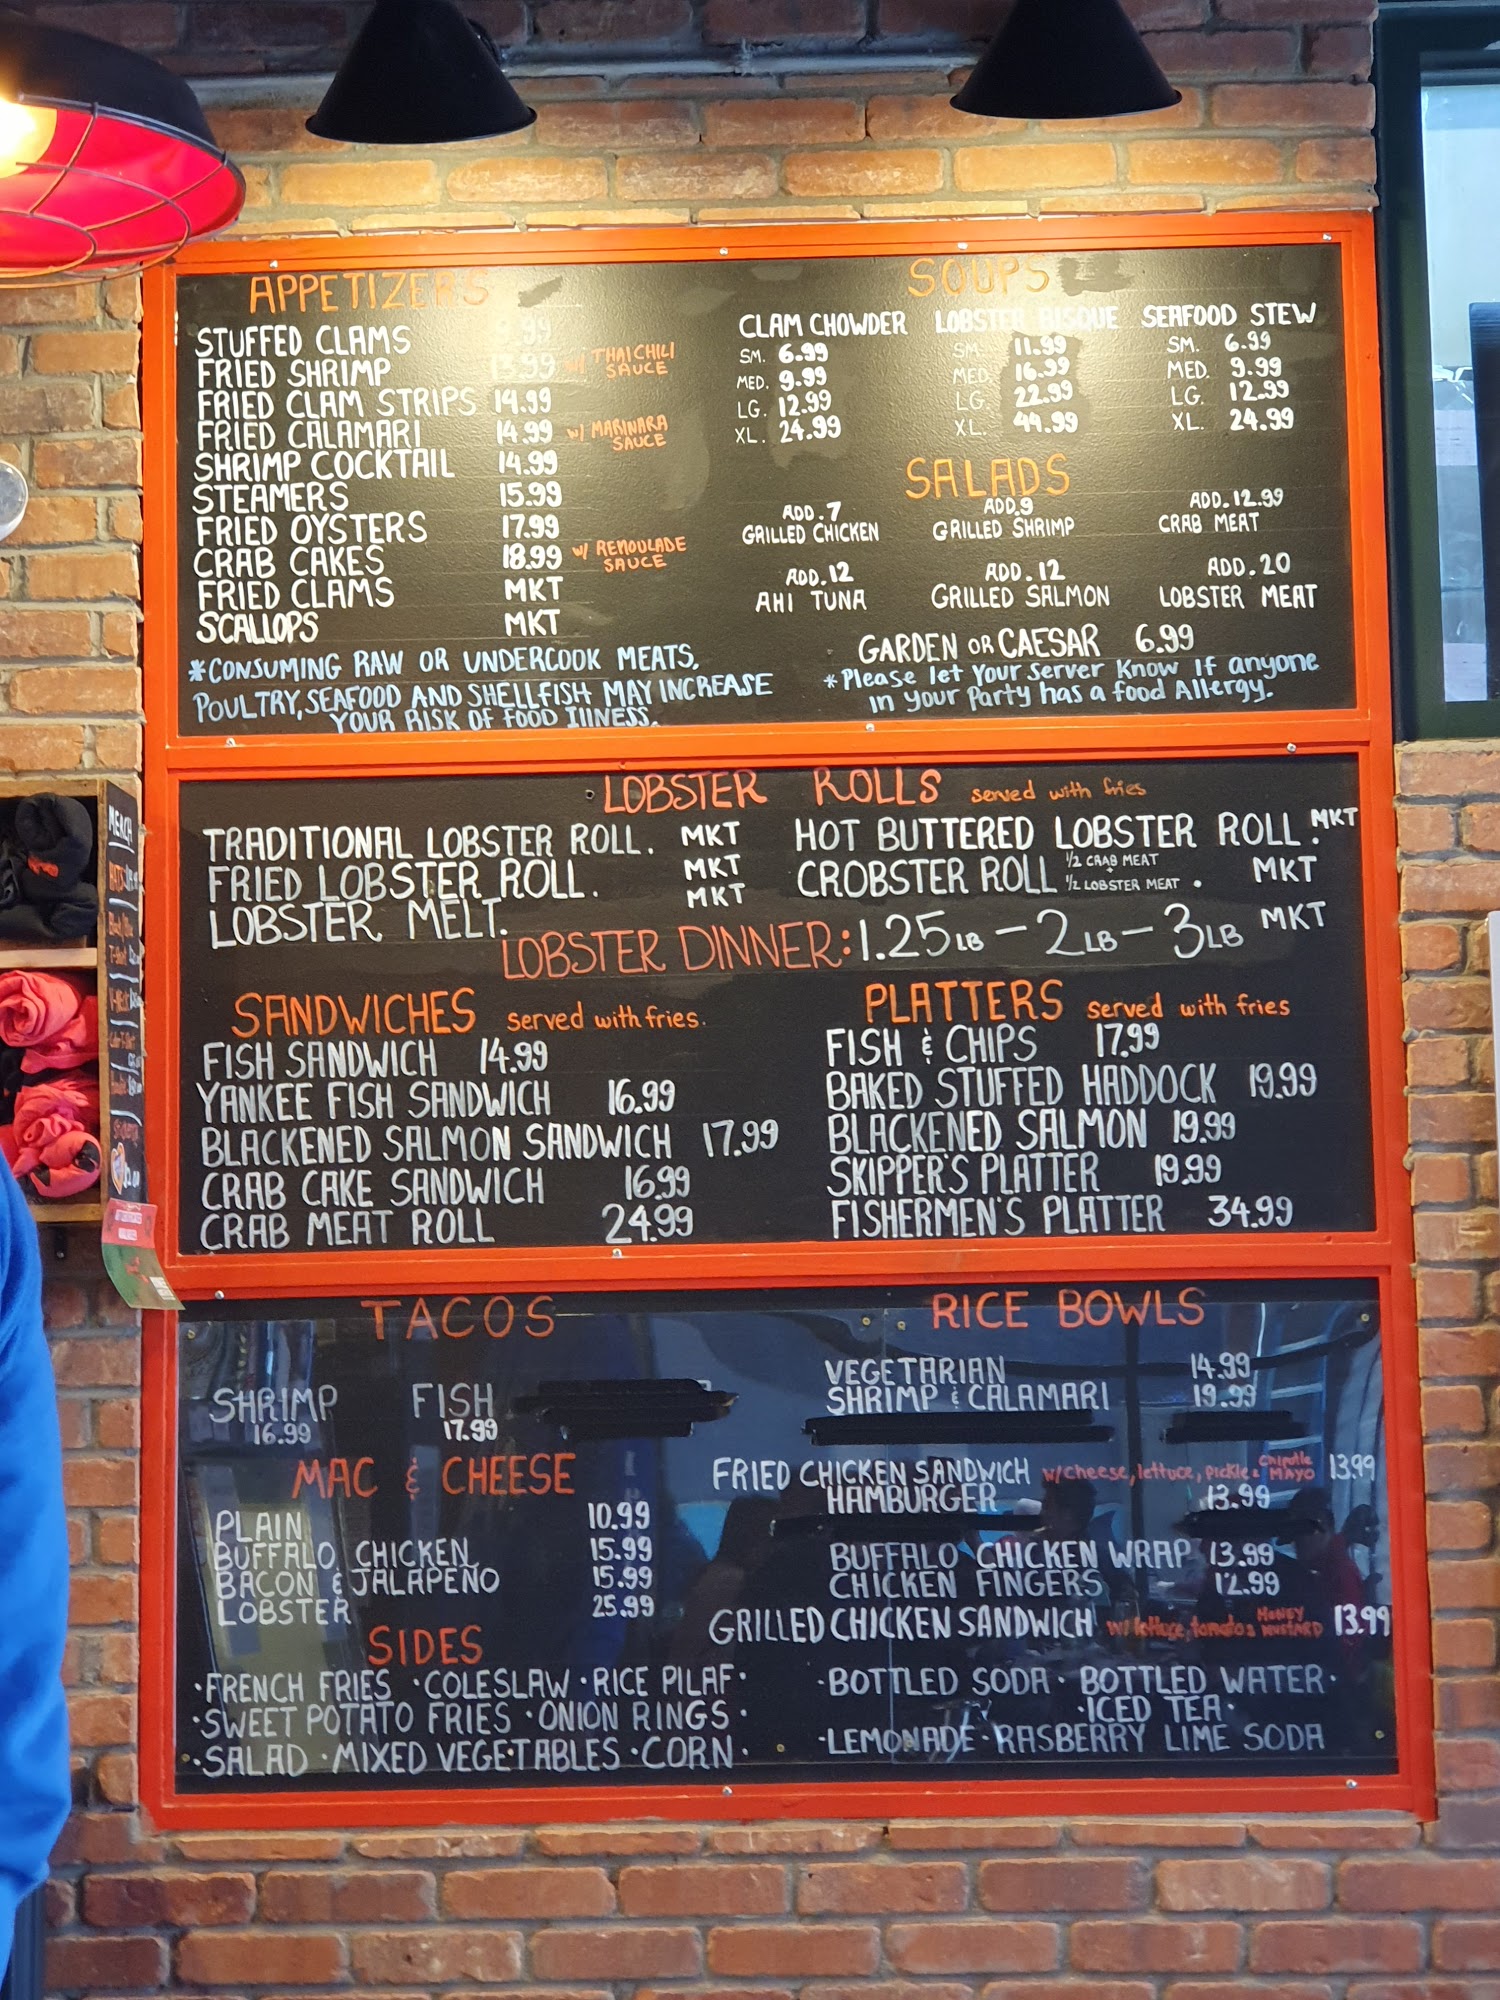 APPETIZERS
STUFFED CLAMS
FRIED SHRIMP 13.99 w/ THAI CHILI SAUCE
FRIED CLAM STRIPS 14.99
FRIED CALAMARI 14.99 w/ MARINARA SAUCE
SHRIMP COCKTAIL 14.99
STEAMERS 15.99
FRIED OYSTERS 17.99
CRAB CAKES 18.99 w/ REMOULADE SAUCE
FRIED CLAMS MKT
SCALLOPS MKT
*CONSUMING RAW OR UNDERCOOK MEATS,
POULTRY, SEAFOOD AND SHELLFISH MAY INCREASE
YOUR RISK OF FOOD ILLNESS.
SOUPS
CLAM CHOWDER LOBSTER BISQUE SEAFOOD STEW
SM. 6.99 SM. 11.99 SM. 6.99
MED. 9.99 MED. 16.99 MED. 9.99
LG. 12.99 LG. 22.99 LG. 12.99
XL. 24.99 XL. 44.99 XL. 24.99
SALADS
ADD.7 ADD.9 ADD.12.99
GRILLED CHICKEN GRILLED SHRIMP CRAB MEAT
ADD.12 ADD.12 ADD.20
AHI TUNA GRILLED SALMON LOBSTER MEAT
GARDEN OR CAESAR 6.99
*Please let Your Server Know If anyone
in your Party has a food Allergy.
LOBSTER ROLLS served with fries
TRADITIONAL LOBSTER ROLL. MKT HOT BUTTERED LOBSTER ROLL. MKT
FRIED LOBSTER ROLL. MKT CROBSTER ROLL 1/2 CRAB MEAT + 1/2 LOBSTER MEAT . MKT
LOBSTER MELT. MKT
LOBSTER DINNER: 1.25LB - 2LB - 3LB MKT
SANDWICHES served with fries.
FISH SANDWICH 14.99
YANKEE FISH SANDWICH 16.99
BLACKENED SALMON SANDWICH 17.99
CRAB CAKE SANDWICH 16.99
CRAB MEAT ROLL 24.99
PLATTERS served with fries
FISH & CHIPS 17.99
BAKED STUFFED HADDOCK 19.99
BLACKENED SALMON 19.99
SKIPPER'S PLATTER 19.99
FISHERMEN'S PLATTER 34.99
TACOS
SHRIMP FISH
16.99 17.99
MAC & CHEESE
PLAIN 10.99
BUFFALO CHICKEN 15.99
BACON & JALAPEÑO 15.99
LOBSTER 25.99
SIDES
·FRENCH FRIES ·COLESLAW ·RICE PILAF·
·SWEET POTATO FRIES ·ONION RINGS ·
·SALAD ·MIXED VEGETABLES ·CORN·
RICE BOWLS
VEGETARIAN 14.99
SHRIMP & CALAMARI 19.99
FRIED CHICKEN SANDWICH w/cheese, lettuce, pickle & Chipotle MAYO 13.99
HAMBURGER 13.99
BUFFALO CHICKEN WRAP 13.99
CHICKEN FINGERS 12.99
GRILLED CHICKEN SANDWICH w/ lettuce, tomato & HONEY MUSTARD 13.99
·BOTTLED SODA· BOTTLED WATER·
·ICED TEA·
·LEMONADE·RASBERRY LIME SODA
MERCH